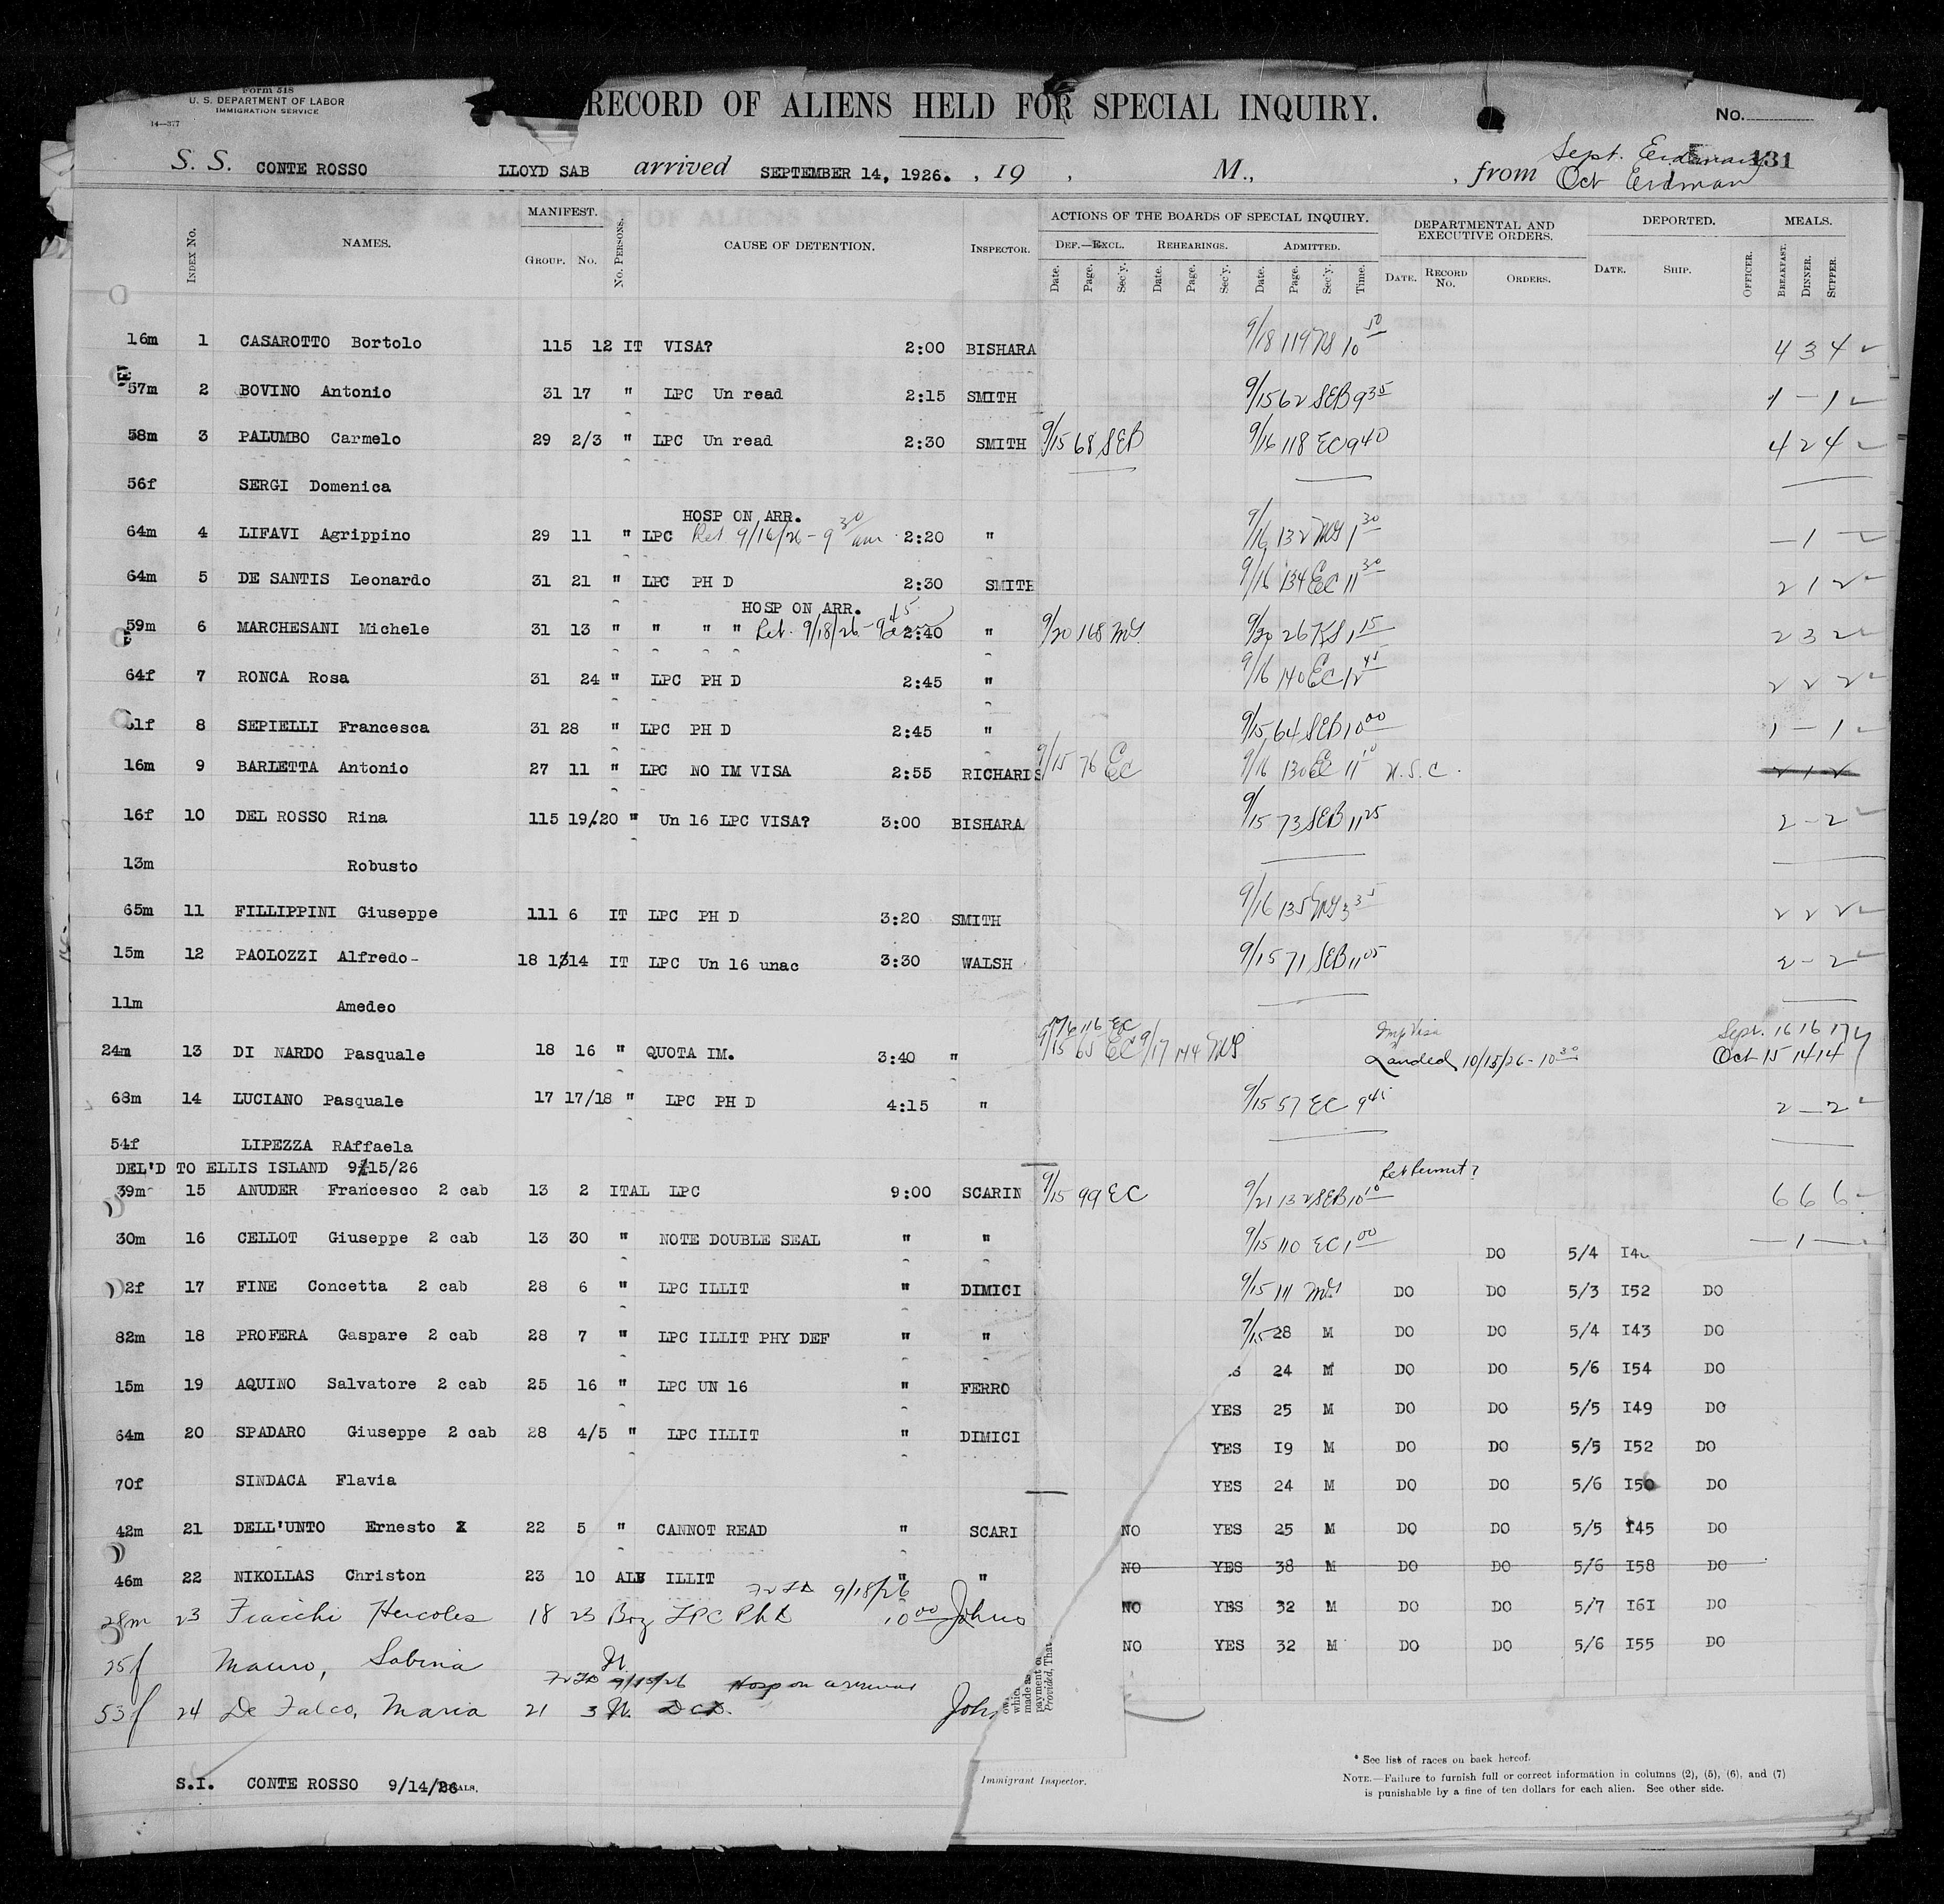 Form 318
U. S. DEPARTMENT OF LABOR
IMMIGRATION SERVICE
14—377
RECORD OF ALIENS HELD FOR SPECIAL INQUIRY.
No.
131
S. S. CONTE ROSSO LLOYD SAB arrived SEPTEMBER 14, 1926. , 19 , M., , from Sept. Erdman
Oct Erdman
INDEX NO. NAMES. MANIFEST. GROUP. NO. NO. PERSONS. CAUSE OF DETENTION. INSPECTOR. ACTIONS OF THE BOARDS OF SPECIAL INQUIRY. DEPARTMENTAL AND EXECUTIVE ORDERS. DEPORTED. MEALS.
DEF.—EXCL. REHEARINGS. ADMITTED.
Date. Page. Sec'y. Date. Page. Sec'y. Date. Page. Sec'y. Time. DATE. RECORD NO. ORDERS. DATE. SHIP. OFFICER. BREAKFAST. DINNER. SUPPER.
16m 1 CASAROTTO Bortolo 115 12 IT VISA? 2:00 BISHARA 9/18 119 MS 10 50 4 3 4
57m 2 BOVINO Antonio 31 17 " LPC Un read 2:15 SMITH 9/15 62 SEB 9 35 1 – 1
58m 3 PALUMBO Carmelo 29 2/3 " LPC Un read 2:30 SMITH 9/15 68 SEB 9/16 118 EC 9 40 4 2 4
56f SERGI Domenica
HOSP ON ARR.
64m 4 LIFAVI Agrippino 29 11 " LPC Ret 9/16/26 - 9 30 am 2:20 " 9/16 132 MS 1 30 – 1
64m 5 DE SANTIS Leonardo 31 21 " LPC PH D 2:30 SMITH 9/16 134 EC 11 30 2 1 2
HOSP ON ARR.
59m 6 MARCHESANI Michele 31 13 " " " " Ret. 9/18/26 - 9 45 2:40 " 9/20 168 MS 9/20 26 KS 1 15 2 3 2
64f 7 RONCA Rosa 31 24 " LPC PH D 2:45 " 9/16 140 EC 12 45 2 2 2
61f 8 SEPIELLI Francesca 31 28 " LPC PH D 2:45 " 9/15 64 SEB 10 00 1 – 1
16m 9 BARLETTA Antonio 27 11 " LPC NO IM VISA 2:55 RICHARDS 9/15 76 EC 9/16 130 EC 11 10 2 1 2
16f 10 DEL ROSSO Rina 115 19/20 " Un 16 LPC VISA? 3:00 BISHARA 9/15 73 SEB 11 25 2 – 2
13m Robusto
65m 11 FILLIPPINI Giuseppe 111 6 IT LPC PH D 3:20 SMITH 9/16 135 MS 3 35 2 2 2
15m 12 PAOLOZZI Alfredo- 18 1314 IT LPC Un 16 unac 3:30 WALSH 9/15 71 SEB 11 05 2 – 2
11m Amedeo
9/16 116 EC Imp Visa Sept. 16 16 17
24m 13 DI NARDO Pasquale 18 16 " QUOTA IM. 3:40 " 9/15 65 EC 9/17 144 MS Landed 10/15/26 - 10 30 Oct 15 14 14
68m 14 LUCIANO Pasquale 17 17/18 " LPC PH D 4:15 " 9/15 57 EC 9 45 2 – 2
54f LIPEZZA RAffaela
DEL'D TO ELLIS ISLAND 9/15/26 Ret Permit?
39m 15 ANUDER Francesco 2 cab 13 2 ITAL LPC 9:00 SCARIN 9/15 99 EC 9/21 132 SEB 10 10 6 6 6
30m 16 CELLOT Giuseppe 2 cab 13 30 " NOTE DOUBLE SEAL " " 9/15 110 EC 1 00 – 1 –
DO 5/4 I4
2f 17 FINE Concetta 2 cab 28 6 " LPC ILLIT " DIMICI 9/15 111 MS DO DO 5/3 I52 DO
82m 18 PROFERA Gaspare 2 cab 28 7 " LPC ILLIT PHY DEF " " 9/15 28 M DO DO 5/4 I43 DO
S 24 M DO DO 5/6 I54 DO
15m 19 AQUINO Salvatore 2 cab 25 16 " LPC UN 16 " FERRO
YES 25 M DO DO 5/5 I49 DO
64m 20 SPADARO Giuseppe 2 cab 28 4/5 " LPC ILLIT " DIMICI
YES I9 M DO DO 5/5 I52 DO
70f SINDACA Flavia YES 24 M DO DO 5/6 I50 DO
42m 21 DELL'UNTO Ernesto 2 22 5 " CANNOT READ " SCARI NO YES 25 M DO DO 5/5 I45 DO
NO YES 38 M DO DO 5/6 I58 DO
46m 22 NIKOLLAS Christon 23 10 ALB ILLIT " "
9/18/26
28m 23 Fracchi Hercoles 18 23 Brz LPC Ph D 10 00 Johns NO YES 32 M DO DO 5/7 I6I DO
25f Mauro, Sabina It. NO YES 32 M DO DO 5/6 I55 DO
9/15/26 Hosp on arrival
53f 24 De Falco, Maria 21 3 It. DCD. John
which
made as
payment
Provided, That
* See list of races on back hereof.
Immigrant Inspector.
NOTE.—Failure to furnish full or correct information in columns (2), (5), (6), and (7)
is punishable by a fine of ten dollars for each alien. See other side.
S.I. CONTE ROSSO 9/14/26